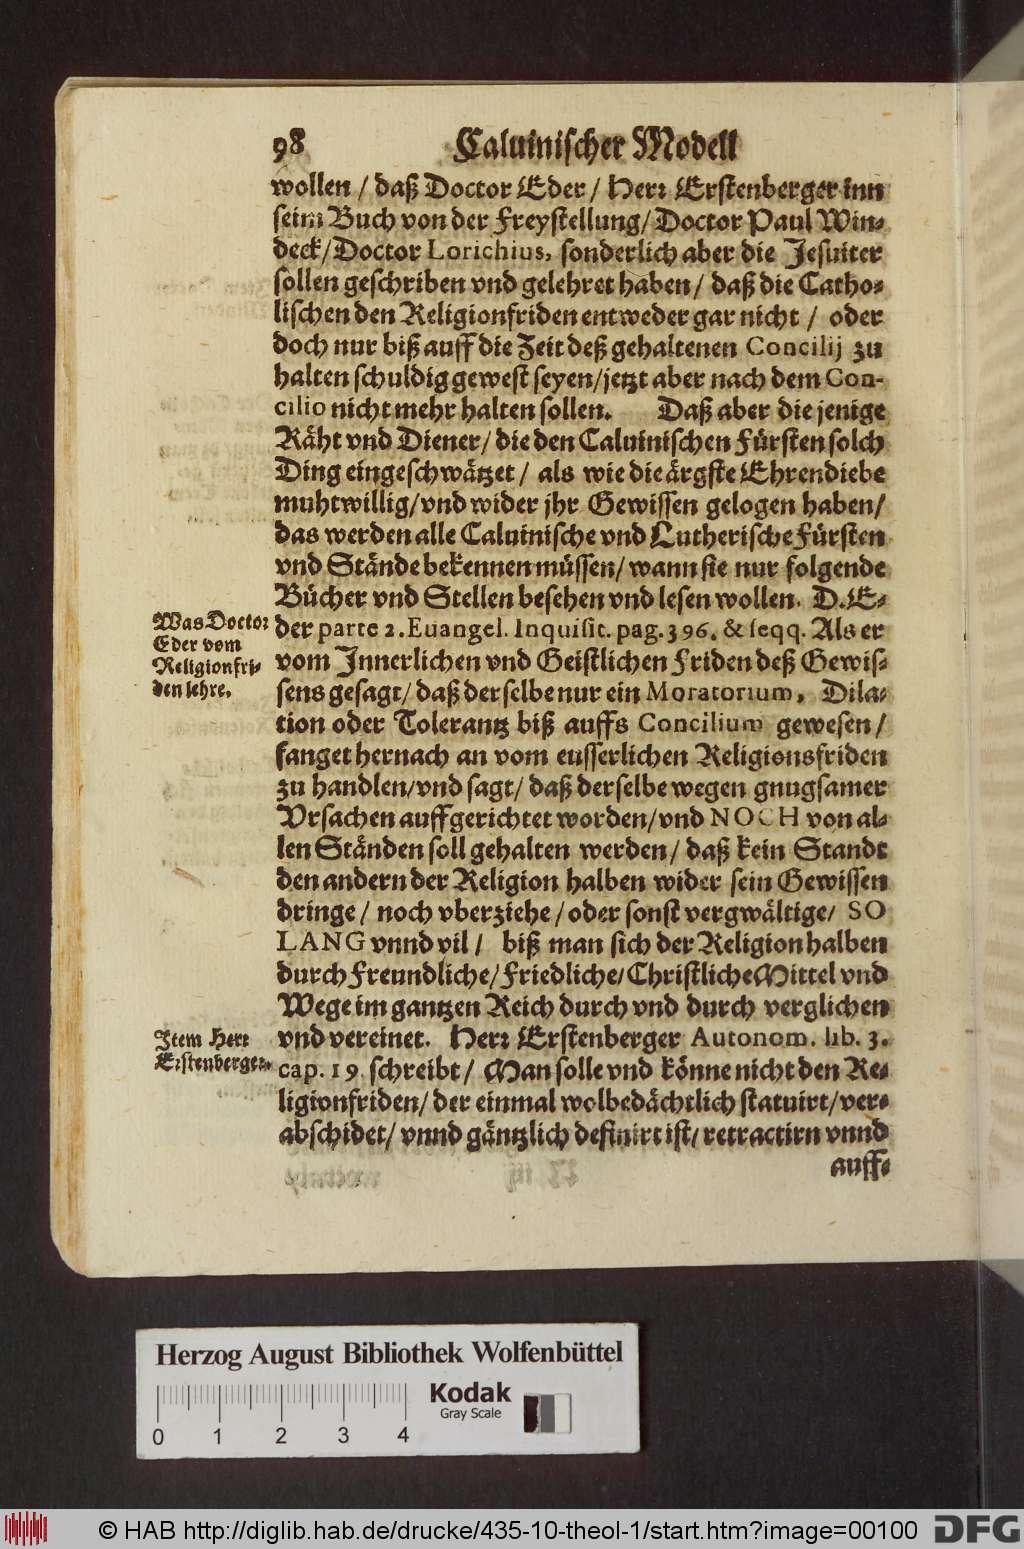 98 Caluinischer Modell
wollen / daß Doctor Eder / Herr Erstenberger inn
seim Buch von der Freystellung / Doctor Paul Win-
deck / Doctor Lorichius, sonderlich aber die Jesuiter
sollen geschriben vnd gelehret haben / daß die Catho-
lischen den Religionfriden entweder gar nicht / oder
doch nur biß auff die Zeit deß gehaltenen Concilij zu
halten schuldig gewest seyen / jetzt aber nach dem Con-
cilio nicht mehr halten sollen. Daß aber die jenige
Räht vnd Diener / die den Caluinischen Fürsten solch
Ding eingeschwätzet / als wie die ärgste Ehrendiebe
muhtwillig / vnd wider jhr Gewissen gelogen haben /
das werden alle Caluinische vnd Lutherische Fürsten
vnd Stände bekennen müssen / wann sie nur folgende
Bücher vnd Stellen besehen vnd lesen wollen. D. E-
Was Doctor
Eder vom
Religionfri-
den lehre.
der parte 2. Euangel. Inquisit. pag. 396. & seqq. Als er
vom Innerlichen vnd Geistlichen Friden deß Gewis-
sens gesagt / daß derselbe nur ein Moratorium, Dila-
tion oder Tolerantz biß auffs Concilium gewesen /
fanget hernach an vom eusserlichen Religionsfriden
zu handlen / vnd sagt / daß derselbe wegen gnugsamer
Vrsachen auffgerichtet worden / vnd NOCH von al-
len Ständen soll gehalten werden / daß kein Standt
den andern der Religion halben wider sein Gewissen
dringe / noch vberziehe / oder sonst vergwältige / SO
LANG vnnd vil / biß man sich der Religion halben
durch Freundliche / Friedliche / Christliche Mittel vnd
Wege im gantzen Reich durch vnd durch verglichen
Item Herr
Erstenberger.
vnd vereinet. Herr Erstenberger Autonom. lib. 3.
cap. 19 schreibt / Man solle vnd könne nicht den Re-
ligionfriden / der einmal wolbedächtlich statuirt / ver-
abschidet / vnnd gäntzlich definirt ist / retractirn vnnd
auff-
Herzog August Bibliothek Wolfenbüttel
Kodak
Gray Scale
0 1 2 3 4
© HAB http://diglib.hab.de/drucke/435-10-theol-1/start.htm?image=00100
DFG